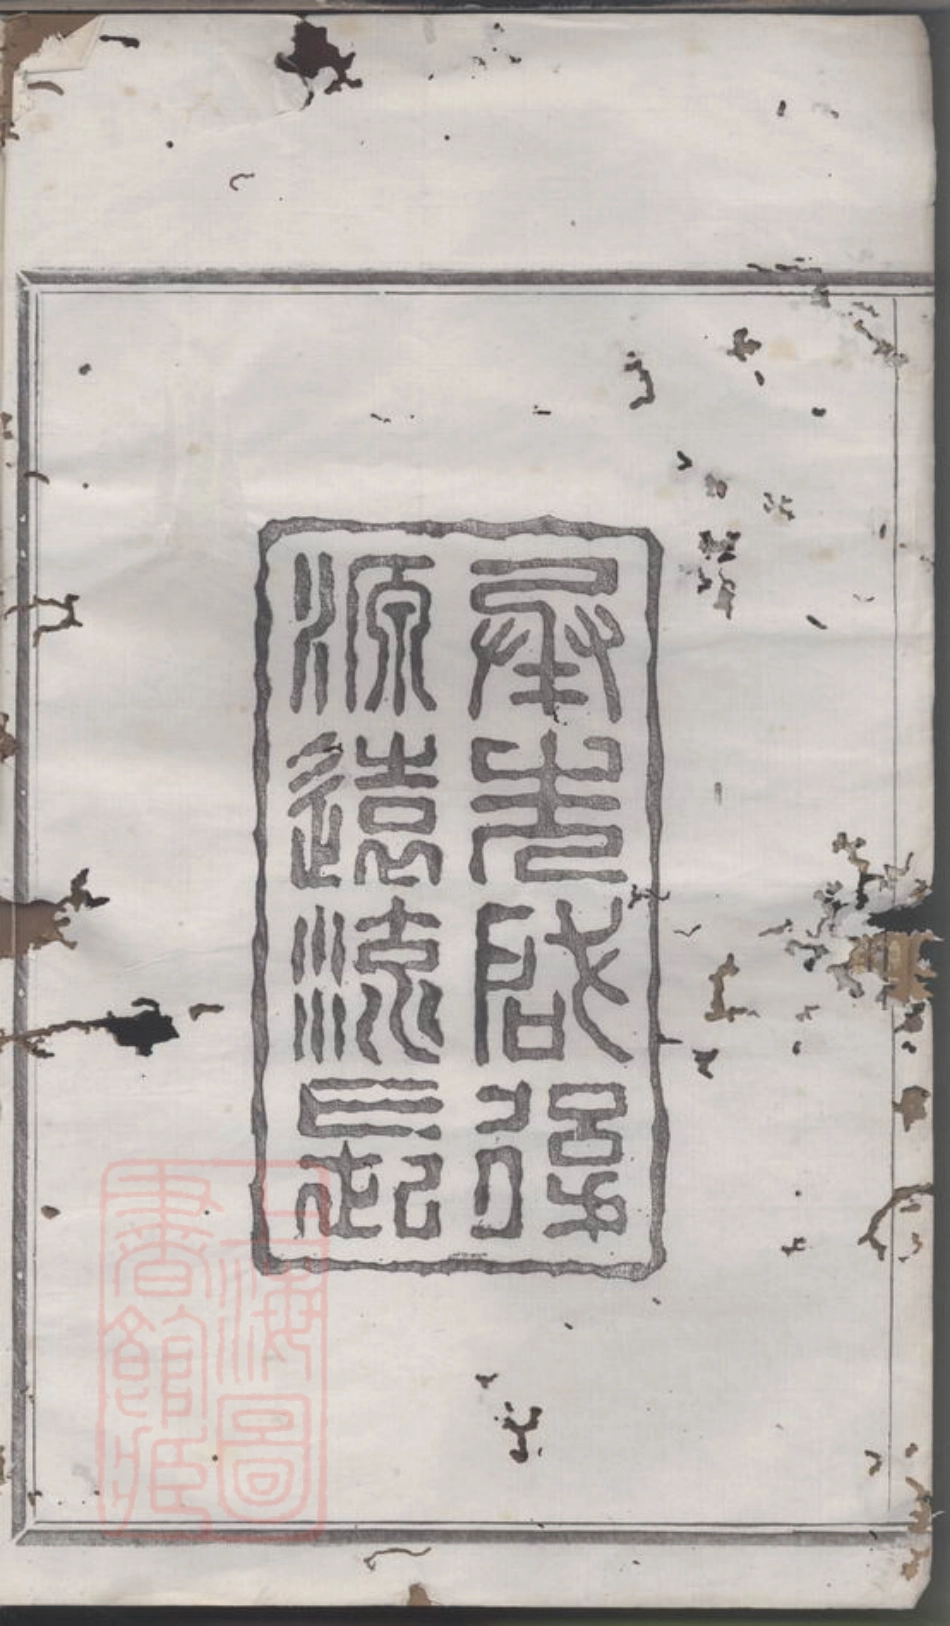 承先啟後
源遠流長
上海圖
書館藏